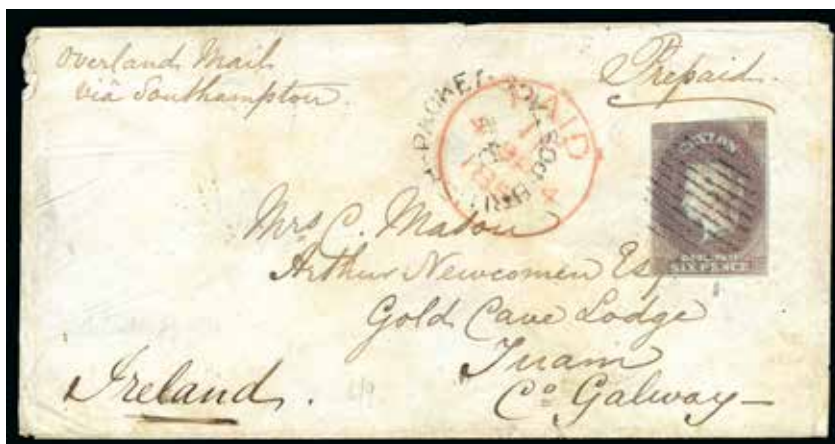 Overland Mail
via Southampton.
Prepaid.
PACKET
PAID
CEYLON
POSTAGE
SIX PENCE
Mrs C. Maton
Arthur Newcomen Esq
Gold Cave Lodge
Tuam
Co Galway—
Ireland.